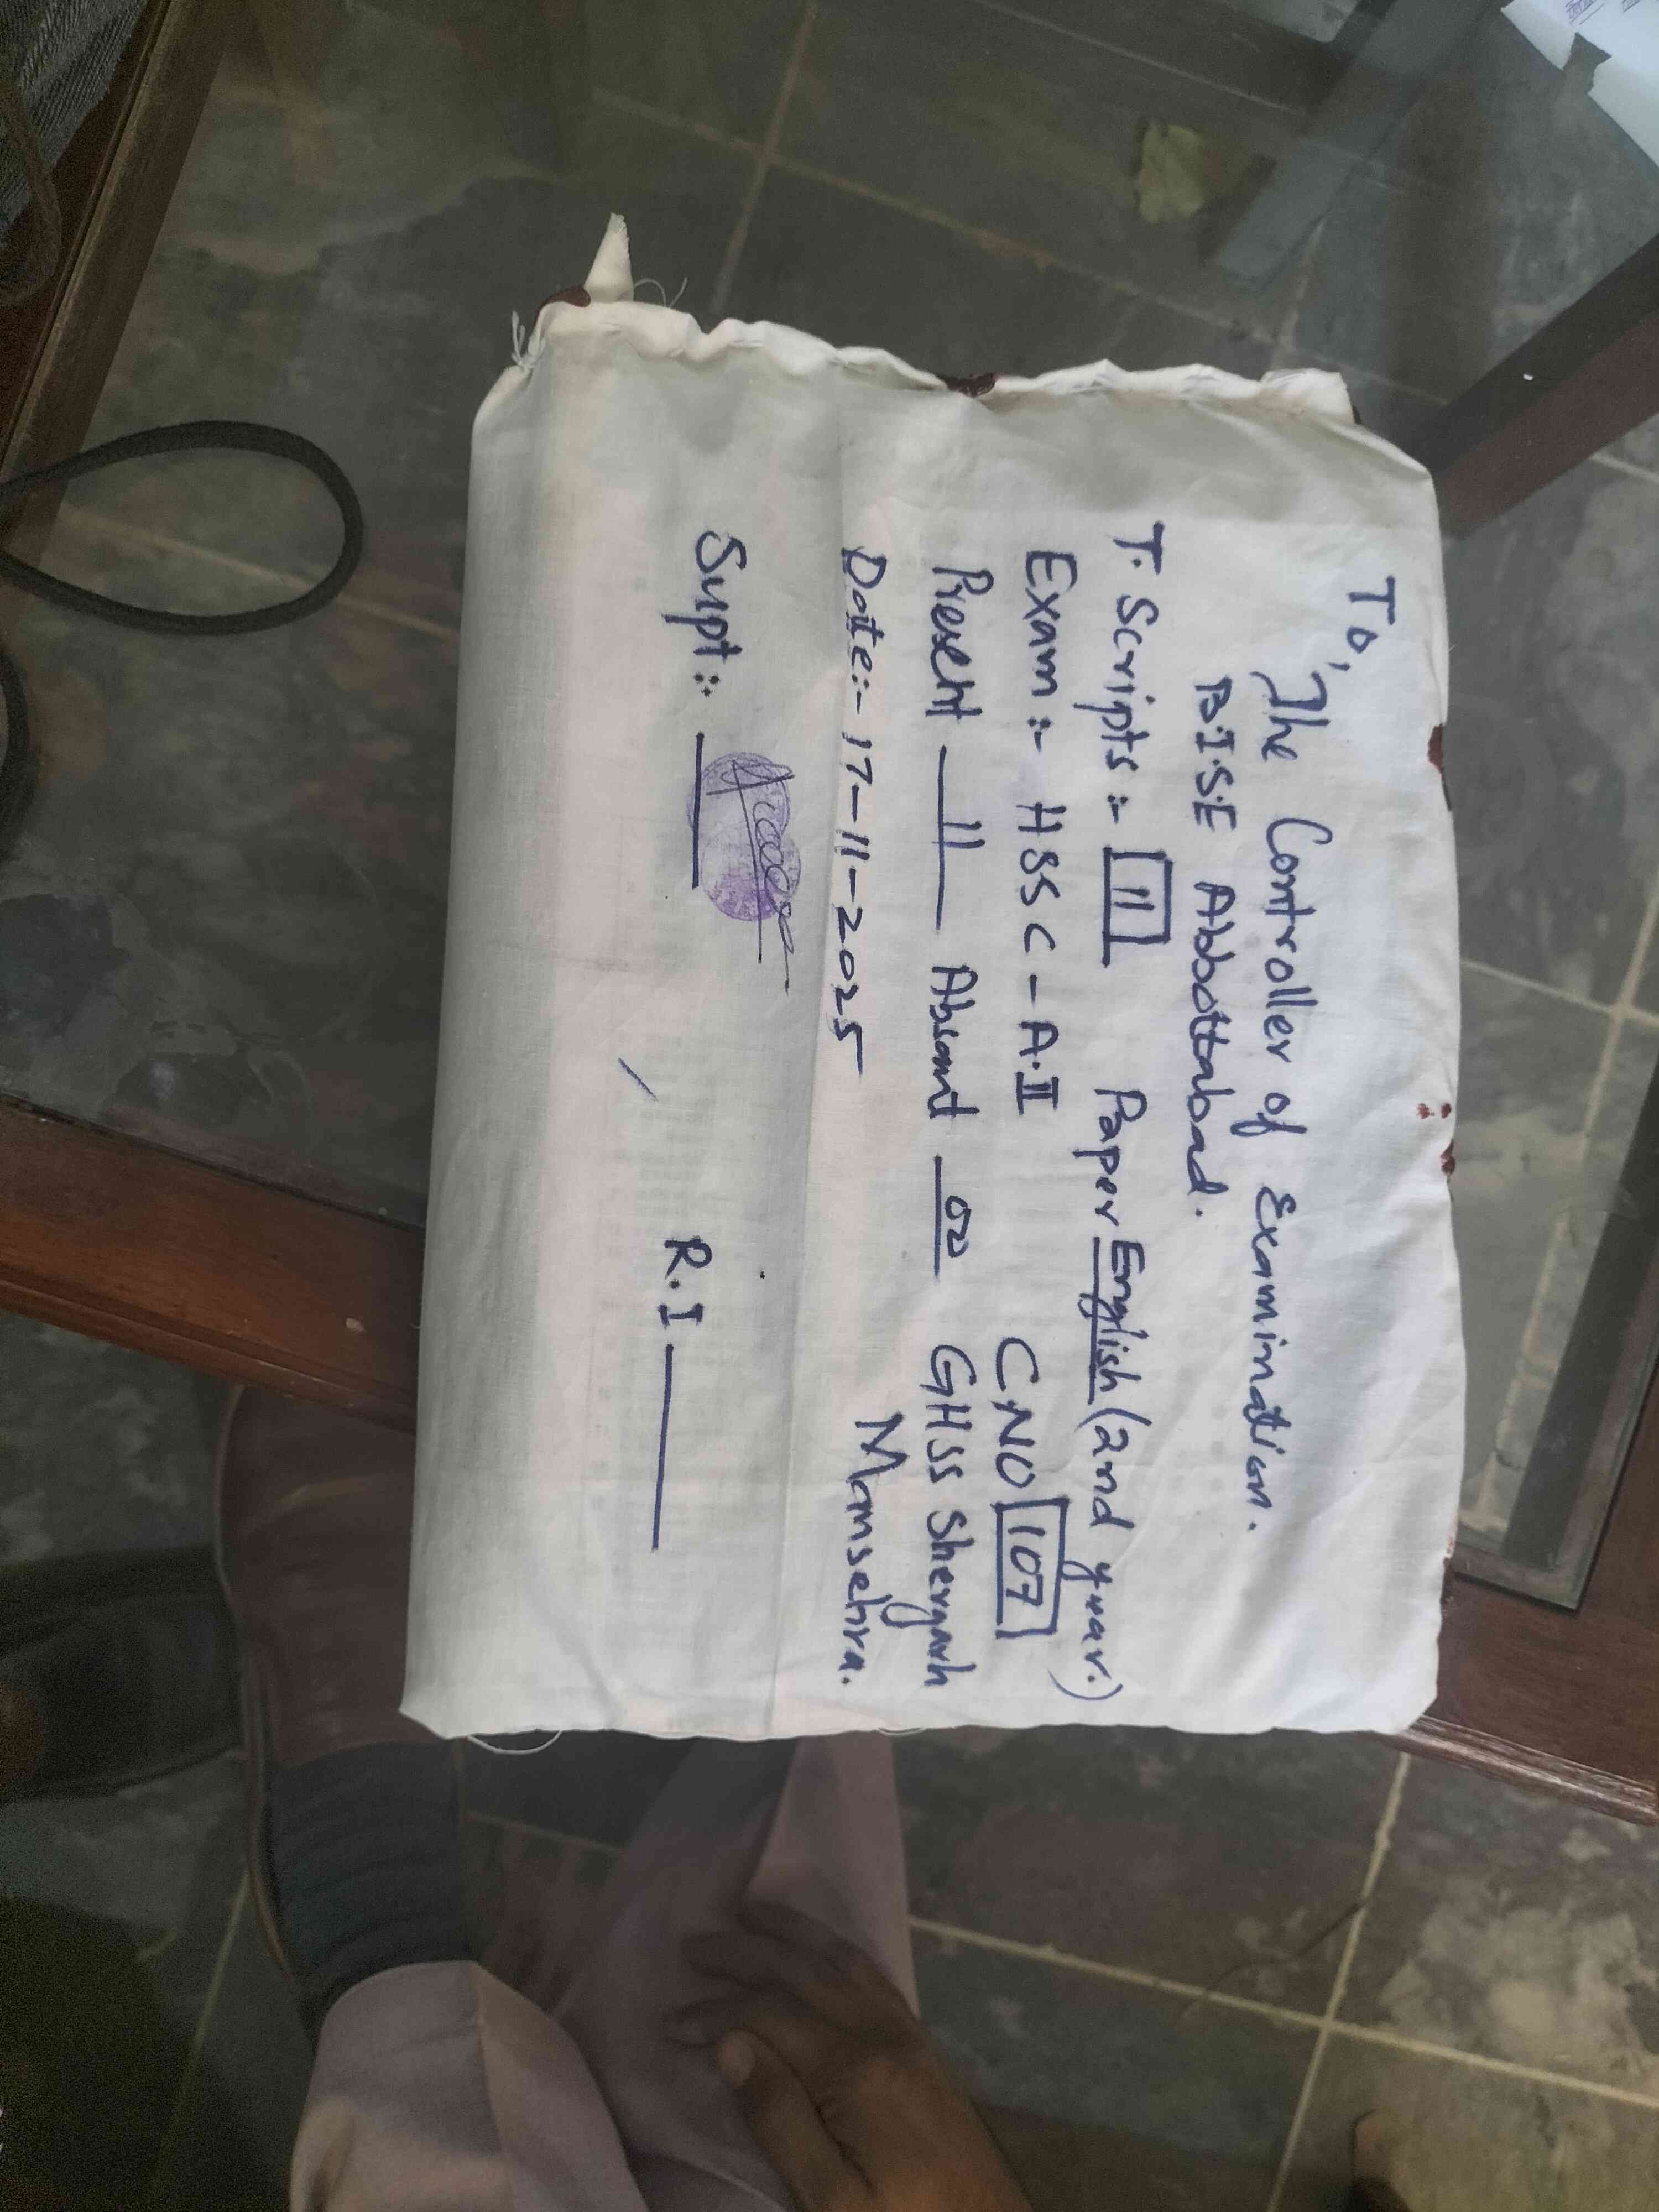 To,
The Controller of Examination.
B.I.S.E Abbottabad.
T. Scripts :- 11 Paper English (2nd year.)
Exam :- HSSC - A.II C.NO 107
Present 11 Absent 00 GHSS Shergarh
Date:- 17-11-2025 Mansehra.
Supt :-
R.I